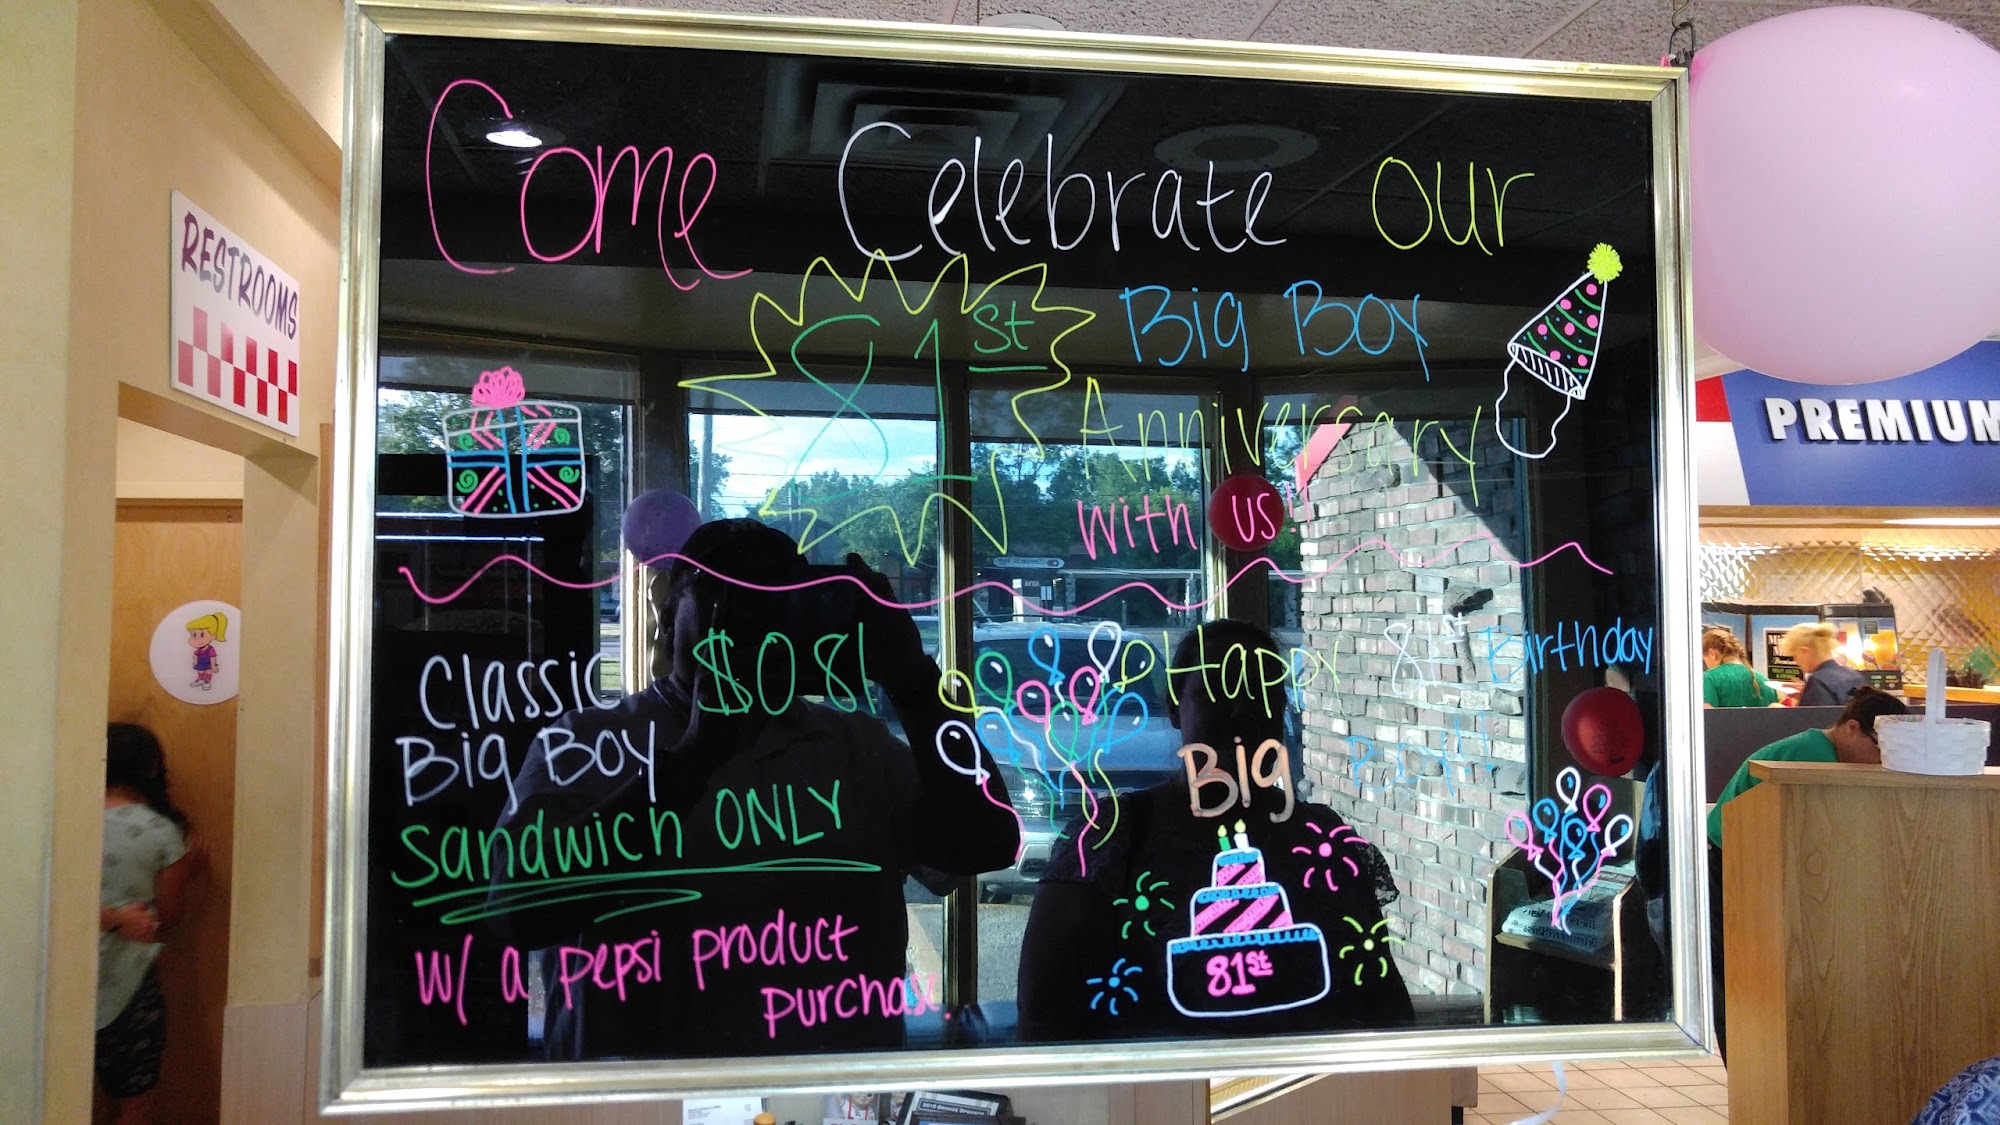 Come Celebrate our
81st Big Boy
Anniversary
with us!!
Classic $0.81
Big Boy
Sandwich ONLY
w/ a pepsi product
purchase.
Happy 81st Birthday
Big Boy!!
81st
RESTROOMS
PREMIUM